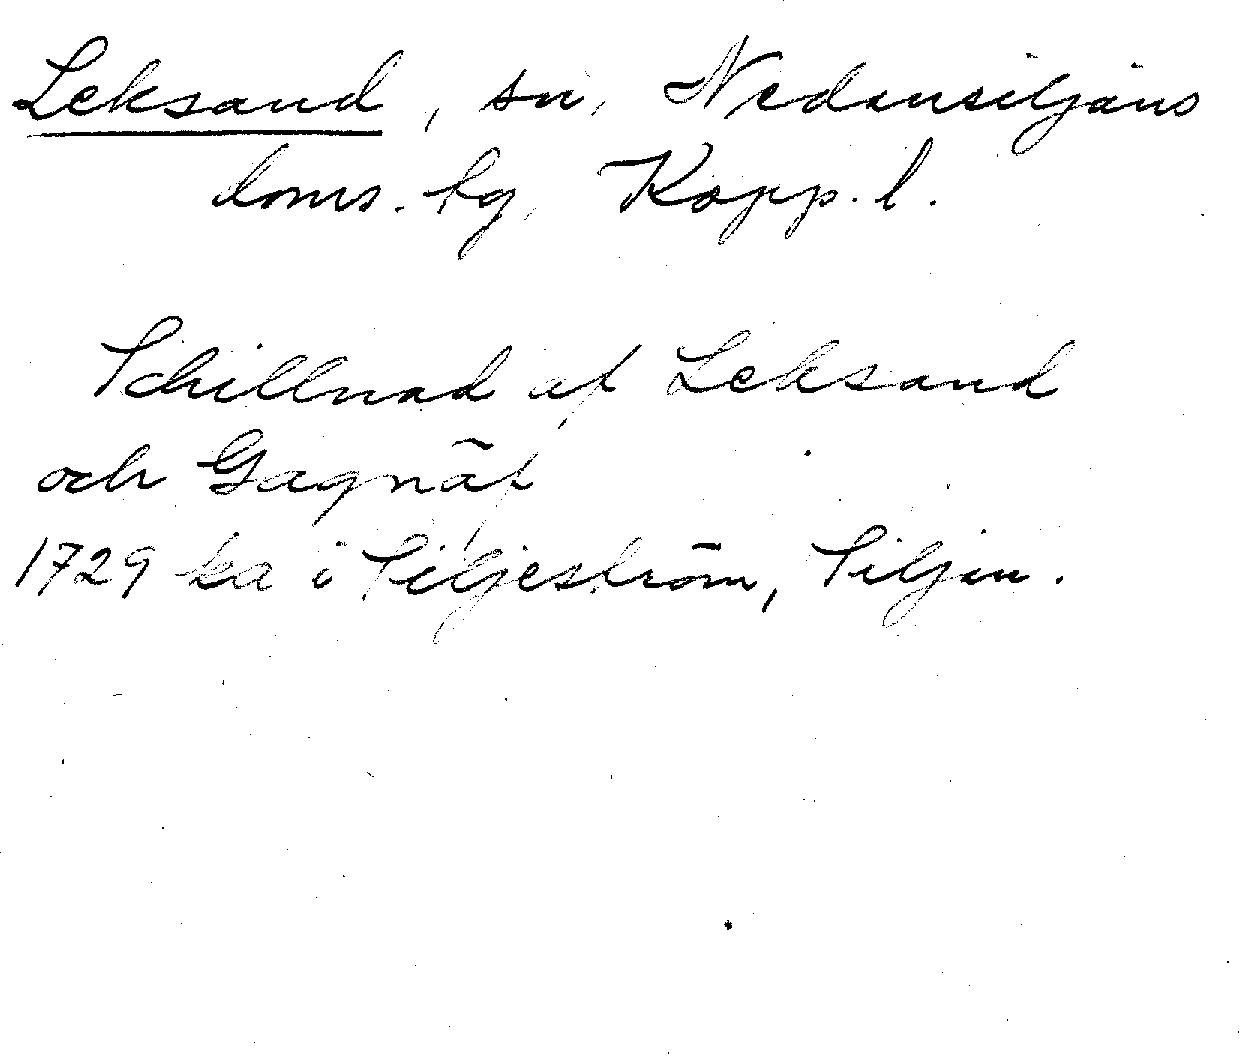 Leksand, sn, Nedansiljans
doms. hg, Kopp. l.
Schillnad af Leksand
och Gagnäf
1729 ka i Siljeström, Siljan.